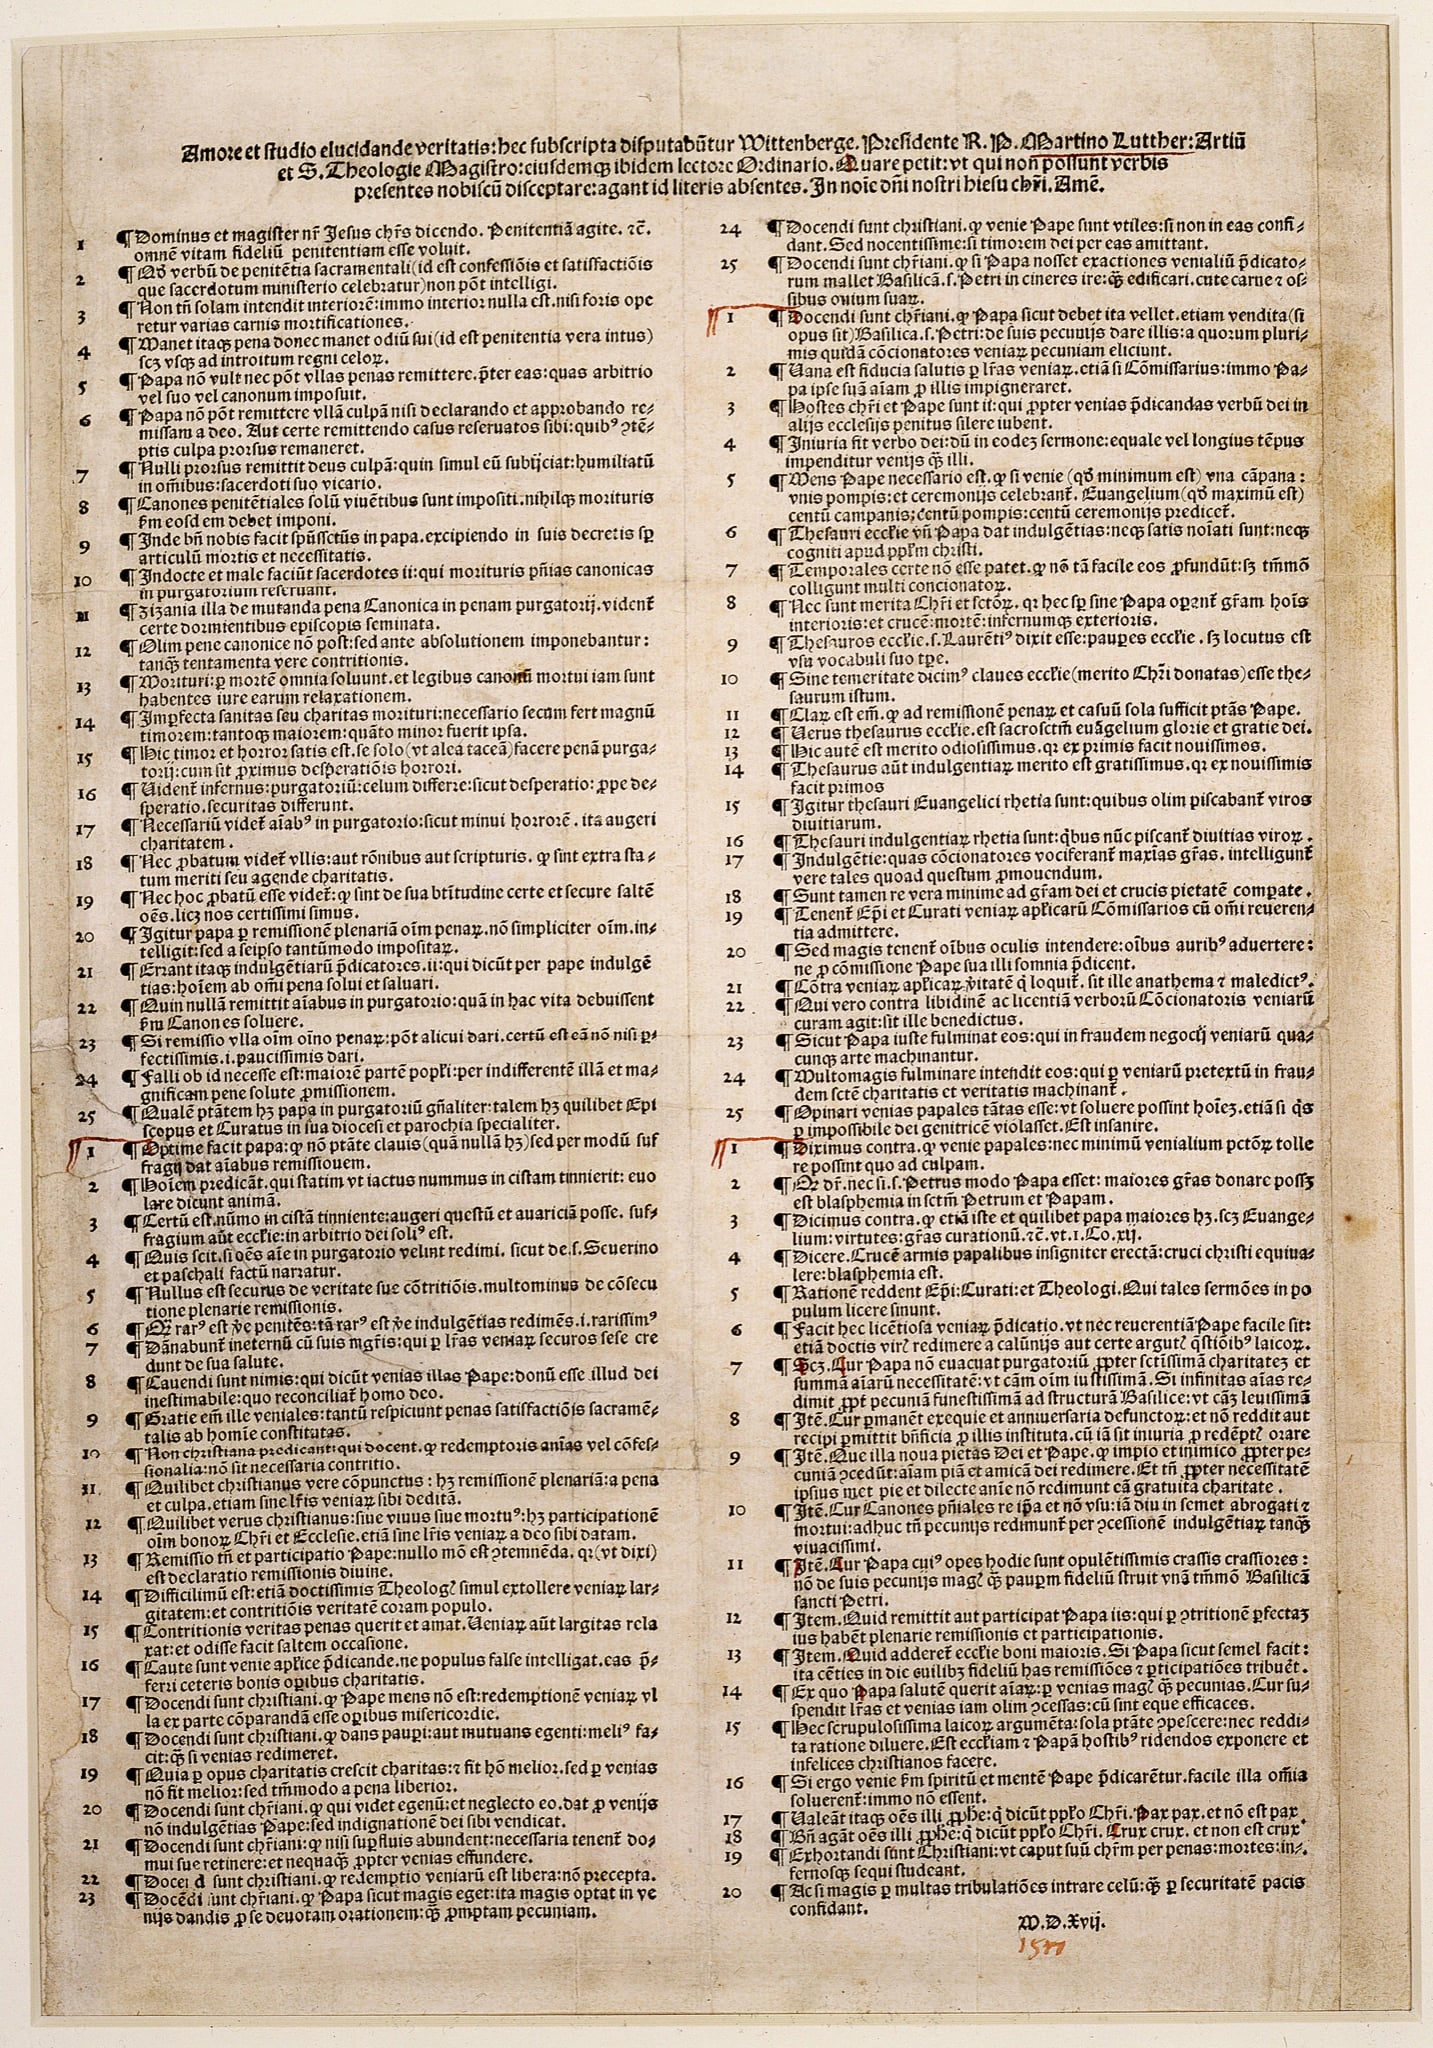 Amore et studio elucidande veritatis: hec subscripta disputabūtur Wittenberge. Presidente R. P. Martino Lutther: Artiū
et S. Theologie Magistro: eiusdemqꝫ ibidem lectore Ordinario. Quare petit: vt qui non possunt verbis
presentes nobiscū disceptare: agant id literis absentes. In noīe dn̄i nostri hiesu chr̄i. Amē.
1 ¶ Dominus et magister nr̄ Jesus chr̄s dicendo. Penitentiā agite. ⁊c̄.
omnē vitam fideliū penitentiam esse voluit.
2 ¶ Qd̄ verbū de penitētia sacramentali (id est confessiōis et satisfactiōis
que sacerdotum ministerio celebratur) non pōt intelligi.
3 ¶ Non tn̄ solam intendit interiorē: immo interior nulla est. nisi foris ope
retur varias carnis mortificationes.
4 ¶ Manet itaqꝫ pena donec manet odiū sui (id est penitentia vera intus)
scꝫ vsqꝫ ad introitum regni celoꝝ.
5 ¶ Papa nō vult nec pōt vllas penas remittere. p̄ter eas: quas arbitrio
vel suo vel canonum imposuit.
6 ¶ Papa nō pōt remittere vllā culpā nisi declarando et approbando re-
missam a deo. Aut certe remittendo casus reseruatos sibi: quibꝰ ꝯtē-
ptis culpa prorsus remaneret.
7 ¶ Nulli prorsus remittit deus culpā: quin simul eū subijciat: humiliatū
in om̄ibus: sacerdoti suo vicario.
8 ¶ Canones penitētiales solū viuētibus sunt impositi. nihilqꝫ morituris
ẜm eosd em debet imponi.
9 ¶ Inde bn̄ nobis facit spūssctūs in papa. excipiendo in suis decretis sꝑ
articulū mortis et necessitatis.
10 ¶ Indocte et male faciūt sacerdotes ii: qui morituris pn̄ias canonicas
in purgatorium reseruant.
11 ¶ Zizania illa de mutanda pena Canonica in penam purgatorij. vident̄
certe dormientibus episcopis seminata.
12 ¶ Olim pene canonice nō post: sed ante absolutionem imponebantur:
tanqꝫ tentamenta vere contritionis.
13 ¶ Morituri: ꝑ mortē omnia soluunt. et legibus canonū mortui iam sunt
habentes iure earum relaxationem.
14 ¶ Imꝑfecta sanitas seu charitas morituri: necessario secum fert magnū
timorem: tantoqꝫ maiorem: quāto minor fuerit ipsa.
15 ¶ Hic timor et horror satis est. se solo (vt alea taceā) facere penā purga-
torij: cum sit ꝓximus desꝑationis horrori.
16 ¶ Vident̄ infernus: purgatoriū: celum differre: sicut desperatio: ꝓpe de-
speratio. securitas differunt.
17 ¶ Necessariū videt̄ aīabꝰ in purgatorio: sicut minui horrorē. ita augeri
charitatem.
18 ¶ Nec ꝓbatum videt̄ vllis: aut rōnibus aut scripturis. ꝙ sint extra sta-
tum meriti seu agende charitatis.
19 ¶ Nec hoc ꝓbatū esse videt̄: ꝙ sint de sua btītudine certe et secure saltē
oēs. licꝫ nos certissimi simus.
20 ¶ Igitur papa ꝑ remissionē plenariā oīm penaꝝ. nō simpliciter oīm. in-
telligit: sed a seipso tantūmodo impositaꝝ.
21 ¶ Errant itaqꝫ indulgētiarū p̄dicatores. ii: qui dicūt per pape indulgē
tias: hoīem ab om̄i pena solui et saluari.
22 ¶ Quin nullā remittit aīabus in purgatorio: quā in hac vita debuissent
ẜm Canones soluere.
23 ¶ Si remissio vlla oīm oīno penaꝝ: pōt alicui dari. certū est eā nō nisi ꝑ-
fectissimis. i. paucissimis dari.
24 ¶ Falli ob id necesse est: maiorē partē popl̄i: per indifferentē illā et ma-
gnificam pene solute ꝓmissionem.
25 ¶ Qualē ptātem hꝫ papa in purgatoriū gn̄aliter: talem hꝫ quilibet Epi
scopus et Curatus in sua diocesi et parochia specialiter.
1 ¶ Optime facit papa: ꝙ nō ptāte clauis (quā nullā hꝫ) sed per modū suf
fragij dat aīabus remissionem.
2 ¶ Hoīem predicāt. qui statim vt iactus nummus in cistam tinnierit: euo
lare dicunt animā.
3 ¶ Certū est. nūmo in cistā tinniente: augeri questū et auariciā posse. suf-
fragium aūt eccl̄ie: in arbitrio dei soliꝰ est.
4 ¶ Quis scit. si oēs aīe in purgatorio velint redimi. sicut de. s. Seuerino
et paschali factū narratur.
5 ¶ Nullus est securus de veritate sue cōtritiōis. multominus de cōsecu
tione plenarie remissionis.
6 ¶ Qr̄ rarꝰ est v̄e penitēs: tā rarꝰ est v̄e indulgētias redimēs. i. rarissimꝰ
7 ¶ Dānabunt̄ ineternū cū suis mgr̄is: qui ꝑ lr̄as veniaꝝ securos sese cre
dunt de sua salute.
8 ¶ Cauendi sunt nimis: qui dicūt venias illas Pape: donū esse illud dei
inestimabile: quo reconciliat̄ homo deo.
9 ¶ Gratie em̄ ille veniales: tantū respiciunt penas satisfactiōis sacramē-
talis ab homīe constitutas.
10 ¶ Non christiana predicant: qui docent. ꝙ redemptoris anīas vel cōfes-
sionalia: nō sit necessaria contritio.
11 ¶ Quilibet christianus vere cōpunctus: hꝫ remissionē plenariā: a pena
et culpa. etiam sine lr̄is veniaꝝ sibi deditā.
12 ¶ Quilibet verus christianus: siue viuus siue mortuꝰ: hꝫ participationē
oīm bonoꝝ Chr̄i et Ecclesie. etiā sine lr̄is veniaꝝ a deo sibi datam.
13 ¶ Remissio tn̄ et participatio Pape: nullo mō est ꝯtemnēda. qꝛ (vt dixi)
est declaratio remissionis diuine.
14 ¶ Difficilimū est: etiā doctissimis Theologꝭ simul extollere veniaꝝ lar-
gitatem: et contritiōis veritatē coram populo.
15 ¶ Contritionis veritas penas querit et amat. Veniaꝝ aūt largitas rela
xat: et odisse facit saltem occasione.
16 ¶ Caute sunt venie apl̄ice p̄dicande. ne populus false intelligat. eas p̄-
ferri ceteris bonis oꝑibus charitatis.
17 ¶ Docendi sunt christiani. ꝙ Pape mens nō est: redemptionē veniaꝝ vl
la ex parte cōparandā esse oꝑibus misericordie.
18 ¶ Docendi sunt christiani. ꝙ dans pauꝑi: aut mutuans egenti: meliꝰ fa-
cit: qꝫ si venias redimeret.
19 ¶ Quia ꝑ opus charitatis crescit charitas: ⁊ fit hō melior. sed ꝑ venias
nō fit melior: sed tm̄modo a pena liberior.
20 ¶ Docendi sunt chr̄iani. ꝙ qui videt egenū: et neglecto eo. dat ꝓ venijs
nō indulgētias Pape: sed indignationē dei sibi vendicat.
21 ¶ Docendi sunt chr̄iani: ꝙ nisi suꝑfluis abundent: necessaria tenent̄ do-
mui sue retinere: et nequaqꝫ ꝓpter venias effundere.
22 ¶ Docei d sunt christiani. ꝙ redemptio veniarū est libera: nō precepta.
23 ¶ Docēdi sunt chr̄iani. ꝙ Papa sicut magis eget: ita magis optat in ve
nijs dandis ꝓ se deuotam orationem: qꝫ ꝓmptam pecuniam.
24 ¶ Docendi sunt christiani. ꝙ venie Pape sunt vtiles: si non in eas confi-
dant. Sed nocentissime: si timorem dei per eas amittant.
25 ¶ Docendi sunt chr̄iani. ꝙ si Papa nosset exactiones venialiū p̄dicato-
rum mallet Basilicā. s. Petri in cineres ire: qꝫ edificari. cute carne ⁊ os-
sibus ouium suaꝝ.
1 ¶ Docendi sunt chr̄iani. ꝙ Papa sicut debet ita vellet. etiam vendita (si
opus sit) Basilica. s. Petri: de suis pecunijs dare illis: a quorum pluri-
mis quidā cōcionatores veniaꝝ pecuniam eliciunt.
2 ¶ Vana est fiducia salutis ꝑ lr̄as veniaꝝ. etiā si Cōmissarius: immo Pa-
pa ipse suā aīam ꝓ illis impigneraret.
3 ¶ Hostes chr̄i et Pape sunt ii: qui ꝓpter venias p̄dicandas verbū dei in
alijs ecclesijs penitus silere iubent.
4 ¶ Iniuria fit verbo dei: dū in eodeꝫ sermone: equale vel longius tēpus
impenditur venijs qꝫ illi.
5 ¶ Mens Pape necessario est. ꝙ si venie (qd̄ minimum est) vna cāpana:
vnis pompis: et ceremonijs celebrant̄. Euangelium (qd̄ maximū est)
centū campanis: centū pompis: centū ceremonijs predicet̄.
6 ¶ Thesauri eccl̄ie vn̄ Papa dat indulgētias: neqꝫ satis noīati sunt: neqꝫ
cogniti apud ppl̄m christi.
7 ¶ Temporales certe nō esse patet. ꝙ nō tā facile eos ꝓfundūt: sꝫ tm̄mō
colligunt multi concionatoꝝ.
8 ¶ Nec sunt merita Chr̄i et sctōꝝ. qꝛ hec sꝑ sine Papa oꝑant̄ gr̄am hoīs
interioris: et crucē: mortē: infernumqꝫ exterioris.
9 ¶ Thesauros eccl̄ie. s. Laurētiꝰ dixit esse: pauꝑes eccl̄ie. sꝫ locutus est
vsu vocabuli suo tꝑe.
10 ¶ Sine temeritate dicimꝰ claues eccl̄ie (merito Chr̄i donatas) esse the-
saurum istum.
11 ¶ Claꝝ est em̄. ꝙ ad remissionē penaꝝ et casuū sola sufficit ptās Pape.
12 ¶ Verus thesaurus eccl̄ie. est sacrosctm̄ euāgelium glorie et gratie dei.
13 ¶ Hic autē est merito odiosissimus. qꝛ ex primis facit nouissimos.
14 ¶ Thesaurus aūt indulgentiaꝝ merito est gratissimus. qꝛ ex nouissimis
facit primos
15 ¶ Igitur thesauri Euangelici rhetia sunt: quibus olim piscabant̄ viros
diuitiarum.
16 ¶ Thesauri indulgentiaꝝ rhetia sunt: q̄bus nūc piscant̄ diuitias viroꝝ.
17 ¶ Indulgētie: quas cōcionatores vociferant̄ maxīas gr̄as. intelligunt̄
vere tales quoad questum ꝓmouendum.
18 ¶ Sunt tamen re vera minime ad gr̄am dei et crucis pietatē compate.
19 ¶ Tenent̄ Ep̄i et Curati veniaꝝ apl̄icarū Cōmissarios cū om̄i reueren-
tia admittere.
20 ¶ Sed magis tenent̄ oībus oculis intendere: oībus auribꝰ aduertere:
ne ꝓ cōmissione Pape sua illi somnia p̄dicent.
21 ¶ Cōtra veniaꝝ apl̄icaꝝ v̄itatē q̄ loquit̄. sit ille anathema ⁊ maledictꝰ.
22 ¶ Qui vero contra libidinē ac licentiā verborū Cōcionatoris veniarū
curam agit: sit ille benedictus.
23 ¶ Sicut Papa iuste fulminat eos: qui in fraudem negocij veniarū qua-
cunqꝫ arte machinantur.
24 ¶ Multomagis fulminare intendit eos: qui ꝑ veniarū pretextū in frau-
dem sctē charitatis et veritatis machinant̄.
25 ¶ Opinari venias papales tātas esse: vt soluere possint hoīeꝫ. etiā si q̄s
ꝑ impossibile dei genitricē violasset. Est insanire.
1 ¶ Diximus contra. ꝙ venie papales: nec minimū venialium pctōꝝ tolle
re possint quo ad culpam.
2 ¶ Qꝛ dr̄. nec si. s. Petrus modo Papa esset: maiores gr̄as donare possꝫ
est blasphemia in sctm̄ Petrum et Papam.
3 ¶ Dicimus contra. ꝙ etiā iste et quilibet papa maiores hꝫ. scꝫ Euange-
lium: virtutes: gr̄as curationū. ⁊c̄. vt. 1. Co. xij.
4 ¶ Dicere. Crucē armis papalibus insigniter erectā: cruci christi equiua-
lere: blasphemia est.
5 ¶ Rationē reddent Ep̄i: Curati: et Theologi. Qui tales sermōes in po
pulum licere sinunt.
6 ¶ Facit hec licētiosa veniaꝝ p̄dicatio. vt nec reuerentiā Pape facile sit:
etiā doctis virꝭ redimere a calūnijs aut certe argutꝭ q̄stiōibꝰ laicoꝝ.
7 ¶ Scꝫ. Cur Papa nō euacuat purgatoriū ꝓpter sctīssimā charitateꝫ et
summā aīarū necessitatē: vt cām oīm iustissimā. Si infinitas aīas re-
dimit ꝓpt̄ pecuniā funestissimā ad structurā Basilice: vt cāꝫ leuissimā
8 ¶ Itē. Cur ꝑmanēt exequie et anniuersaria defunctoꝝ: et nō reddit aut
recipi ꝑmittit bn̄ficia ꝓ illis instituta. cū iā sit iniuria ꝓ redēptꝭ orare
9 ¶ Itē. Que illa noua pietas Dei et Pape. ꝙ impio et inimico ꝓpter pe-
cuniā ꝯcedūt: aīam piā et amicā dei redimere. Et tn̄ ꝓpter necessitatē
ipsius met pie et dilecte anīe nō redimunt eā gratuita charitate.
10 ¶ Itē. Cur Canones pn̄iales re ip̄a et nō vsu: iā diu in semet abrogati ⁊
mortui: adhuc tn̄ pecunijs redimunt̄ per ꝯcessionē indulgētiaꝝ tanqꝫ
viuacissimi.
11 ¶ Itē. Cur Papa cuiꝰ opes hodie sunt opulētissimis crassis crassiores:
nō de suis pecunijs magꝭ qꝫ pauꝑm fideliū struit vnā tm̄mō Basilicā
sancti Petri.
12 ¶ Item. Quid remittit aut participat Papa iis: qui ꝑ ꝯtritionē ꝑfectaꝫ
ius habēt plenarie remissionis et participationis.
13 ¶ Item. Quid adderet̄ eccl̄ie boni maioris. Si Papa sicut semel facit:
ita cēties in die cuilibꝫ fideliū has remissiōes ⁊ ꝑticipatiōes tribuēt.
14 ¶ Ex quo Papa salutē querit aīaꝝ: ꝑ venias magꝭ qꝫ pecunias. Cur su-
spendit lr̄as et venias iam olim ꝯcessas: cū sint eque efficaces.
15 ¶ Hec scrupulosissima laicoꝝ argumēta: sola ptāte ꝯpescere: nec reddi-
ta ratione diluere. Est eccl̄iam ⁊ Papā hostibꝰ ridendos exponere et
infelices christianos facere.
16 ¶ Si ergo venie ẜm spiritū et mentē Pape p̄dicarētur. facile illa om̄ia
soluerent̄: immo nō essent.
17 ¶ Valeāt itaqꝫ oēs illi ꝓph̄e: q̄ dicūt ppl̄o Chr̄i. Pax pax. et nō est pax
18 ¶ Bn̄ agāt oēs illi ꝓph̄e: q̄ dicūt ppl̄o Chr̄i. Crux crux. et non est crux
19 ¶ Exhortandi sunt Christiani: vt caput suū chr̄m per penas: mortes: in-
fernosqꝫ sequi studeant.
20 ¶ Ac si magis ꝑ multas tribulatiōes intrare celū: qꝫ ꝑ securitatē pacis
confidant.
M.D.Xvij.
1517